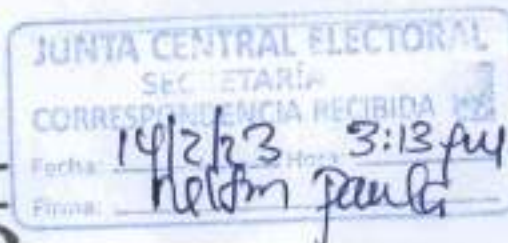 JUNTA CENTRAL ELECTORAL
SECRETARÍA
CORRESPONDENCIA RECIBIDA
Fecha: 14/2/23 Hora: 3:13 pm
Firma: